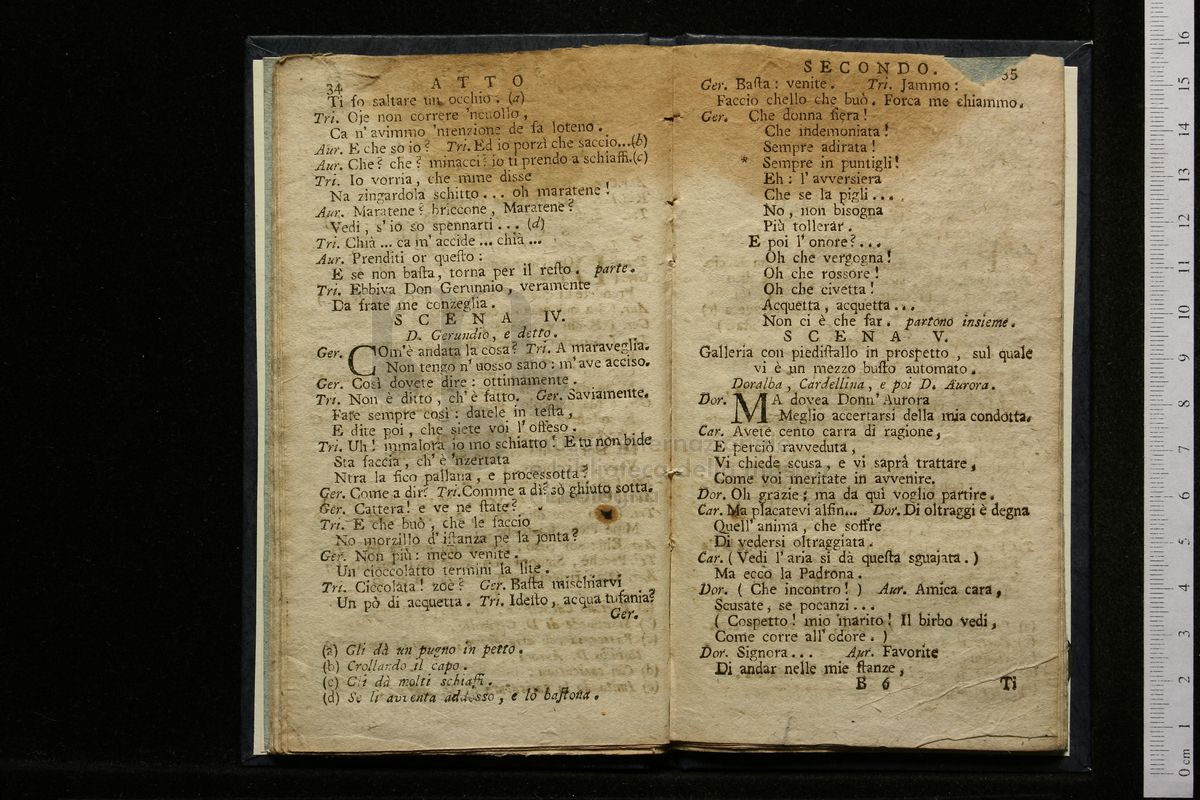 34 ATTO
Ti fo saltare un occhio. (a)
Tri. Oje non correre 'ncuollo,
Ca n'avimmo 'ntenzione de fa loteno.
Aur. E che so io? Tri. Ed io porzì che saccio...(b)
Aur. Che? che? minacci? io ti prendo a schiaffi.(c)
Tri. Io vorria, che mme disse
Na zingardola schitto... oh maratene!
Aur. Maratene? briccone, Maratene?
Vedi, s'io so spennarti... (d)
Tri. Chià... ca m'accide... chià...
Aur. Prenditi or questo:
E se non basta, torna per il resto. parte.
Tri. Ebbiva Don Gerunnio, veramente
Da frate me conzeglia.
SCENA IV.
D. Gerundio, e detto.
Ger. COm'è andata la cosa? Tri. A maraveglia.
Non tengo n'uosso sano: m'ave acciso.
Ger. Così dovete dire: ottimamente.
Tri. Non è ditto, ch'è fatto. Ger. Saviamente.
Fate sempre così: datele in testa,
E dite poi, che siete voi l'offeso.
Tri. Uh! mmalora io mo schiatto! E tu non bide
Sta faccia, ch'è 'nzertata
Ntra la fico pallana, e processotta?
Ger. Come a dir? Tri. Comme a di? sò ghiuto sotta.
Ger. Cattera! e ve ne state?
Tri. E che buò, che le faccio
No morzillo d'istanza pe la jonta?
Ger. Non più: meco venite.
Un cioccolatto termini la lite.
Tri. Ciccolata! zoè? Ger. Basta mischiarvi
Un pò di acquetta. Tri. Ideilo, acqua tufania?
Ger.
(a) Gli dà un pugno in petto.
(b) Crollando il capo.
(c) Gli dà molti schiaffi.
(d) Se li avventa addosso, e lo bastona.
SECONDO. 35
Ger. Basta: venite. Tri. Jammo:
Faccio chello che buò. Forca me chiammo.
Ger. Che donna fiera!
Che indemoniata!
Sempre adirata!
* Sempre in puntigli!
Eh: l'avversiera
Che se la pigli...
No, non bisogna
Più tollerar.
E poi l'onore?...
Oh che vergogna!
Oh che rossore!
Oh che civetta!
Acquetta, acquetta...
Non ci è che far. partono insieme.
SCENA V.
Galleria con piedistallo in prospetto, sul quale
vi è un mezzo busto automato.
Doralba, Cardellina, e poi D. Aurora.
Dor. MA dovea Donn'Aurora
Meglio accertarsi della mia condotta.
Car. Avete cento carra di ragione,
E perciò ravveduta,
Vi chiede scusa, e vi saprà trattare,
Come voi meritate in avvenire.
Dor. Oh grazie: ma da qui voglio partire.
Car. Ma placatevi alfin... Dor. Di oltraggi è degna
Quell'anima, che soffre
Di vedersi oltraggiata.
Car. (Vedi l'aria si dà questa sguajata.)
Ma ecco la Padrona.
Dor. (Che incontro!) Aur. Amica cara,
Scusate, se pocanzi...
(Cospetto! mio marito! Il birbo vedi,
Come corre all'odore.)
Dor. Signora... Aur. Favorite
Di andar nelle mie stanze,
B 6 Ti